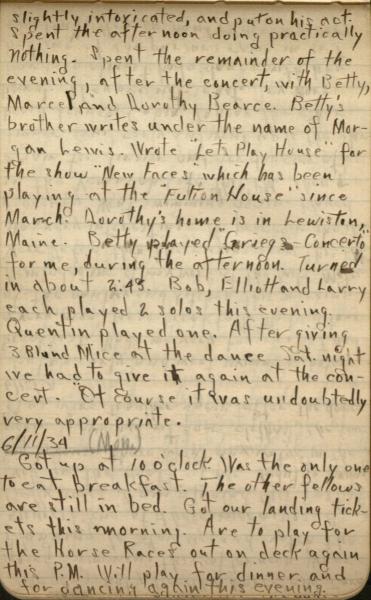 slightly, intoxicated, and put on his act.
Spent the afternoon doing practically
nothing. Spent the remainder of the
evening, after the concert, with Betty,
Marcel, and Dorothy Bearce. Betty's
brother writes under the name of Mor-
gan Lewis. Wrote "Let's Play House" for
the show "New Faces" which has been
playing at the "Fulton House" since
March. Dorothy's home is in Lewiston,
Maine. Betty played "Griegs - Concerto"
for me, during the afternoon. Turned
in about 2:45. Bob, Elliott and Larry
each played 2 solos this evening.
Quentin played one. After giving
3 Blind Mice at the dance Sat. night
we had to give it again at the con-
cert. Of course it was undoubtedly
very appropriate.
6/11/34 (Mon.)
Got up at 10 o'clock. Was the only one
to eat breakfast. The other fellows
are still in bed. Got our landing tick-
ets this morning. Are to play for
the Horse Races out on deck again
this P.M. Will play for dinner and
for dancing again this evening.